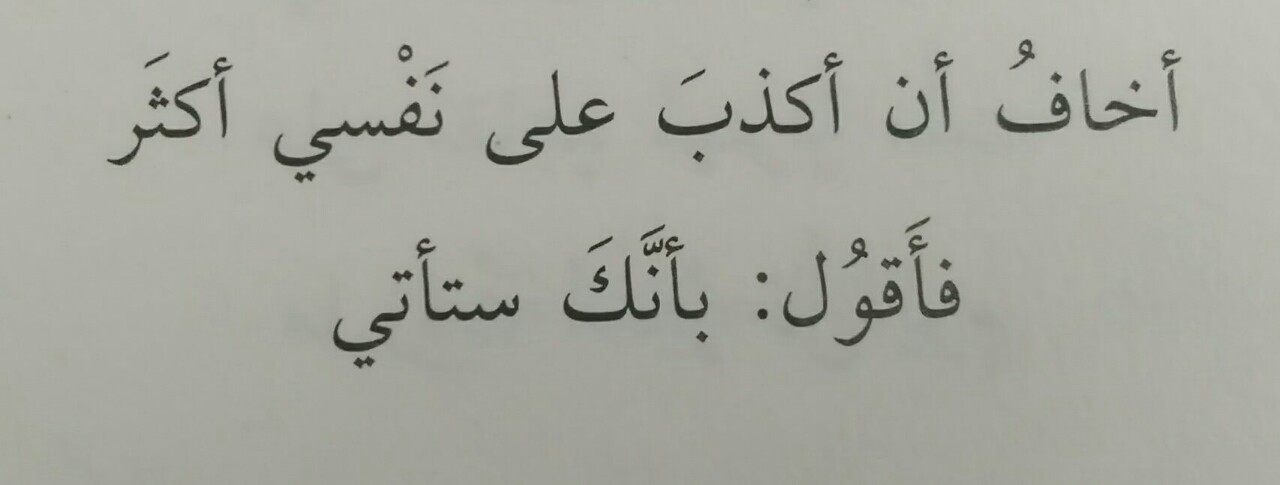 أخافُ أن أكذبَ على نَفْسي أكثَر
فأَقوُل: بأنَّكَ ستأتي